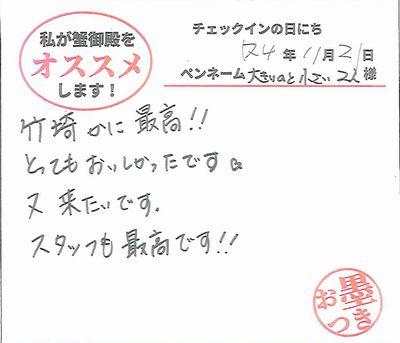 私が蟹御殿を
オススメ
します！
チェックインの日にち
R4年11月21日
ペンネーム 大きいのと小さい2人 様
竹崎かに 最高!!
とってもおいしかったです。
又 来たいです.
スタッフも最高です!!
お墨つき